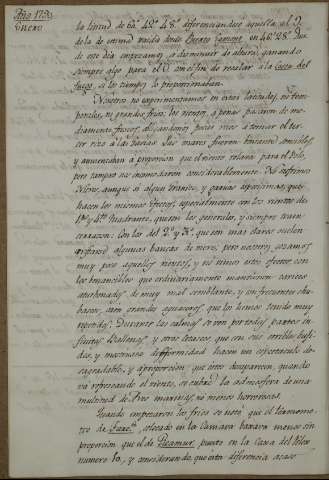 Año 1790
Enero
la latitud de 62° 42' 48" diferenciandose aquella al O.
de la de estima
de este dia empezamos a disminuir de altura, ganando
siempre algo para el O. con el fin de recalar a la Costa del
Fuego, si los tiempos lo proporcionaban.
Nosotros no experimentamos en estas latitudes, ni tem-
porales, ni grandes frios: los vientos, a penas pasaron de me-
diamente frescos, obligandonos pocas veces a tomar el ter-
cer rizo a las Gavias. Las mares fueron bastante sensibles,
y aumentaban a proporcion que el viento rolaba para el Polo,
pero tampoco incomodaron considerablemente. No sufrimos
Nieve, aunque si algun Granizo, y garuas espesisimas, que
hacen los mismos efectos, especialmente con los vientos del
1° y 4° Quadrante, que son los generales, y siempre traen
cerrazon: Con los del 2° y 3°, que son mas claros suelen
 algunas bancas de nieve; pero nosotros gozamos
muy poco aquellos vientos, y no vimos estos efectos con
los transcibles que ordinariamente mantienen
aturbonados, de muy mal semblante, y con frecuentes chu-
bascos, con grandes aguaceros, que los hemos tenido muy
repetidos: Durante las calmas se ven por todas partes in-
finitas Ballenas, y otros cetaceos, que con sus orribles bufi-
dos, y monstruosa disformidad hacen un espectaculo de-
sagradable; y a proporcion que estos desaparecen, quando
va refrescando el viento, se cubre la atmosfera de una
multitud de Aves marinas, no menos horrorosas.
Quando empezaron los frios se noto que el termome-
tro de , colocado en la Camara bavara menos sin
proporcion que el de Reaumur, puesto en la Caxa del Relox
numero 10, y considerando, que esta diferencia acaso